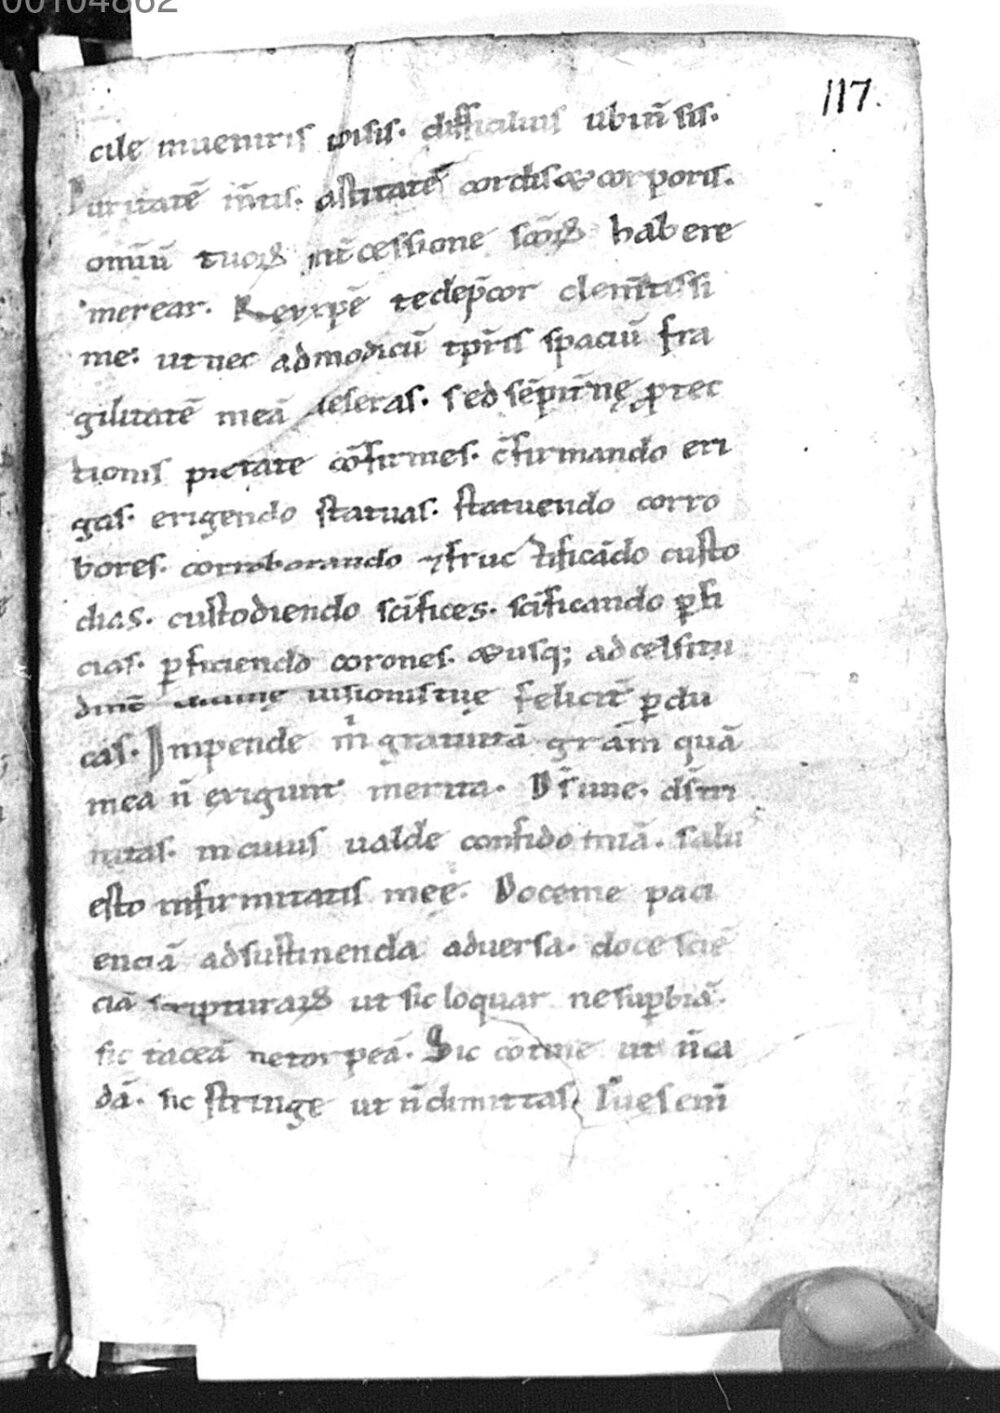 00104862
117.
cile inueniris ubi sis. difficiliuus ubi n̄ sis.
Puritatē m̄tis. castitatē cordis & corporis.
omiū tuoꝝ int̄cessione sc̄oꝝ habere
merear. Rex xp̄e te dep̄cor clem̄tissi
me: ut nec ad modicū tp̄ris spaciū fra
gilitatē meā deseras. sed sēpit̄nę ꝓtec
tionis pietate cōfirmes. c̄firmando eri
gas. erigendo statuas. statuendo corro
bores. corroborando ⁊ fructificādo custo
dias. custodiendo sc̄ifices. sc̄ificando ꝑfi
cias. ꝑficiendo corones. & usq; ad celsitu
dinē diuinę uisionis tuę felicit̄ ꝑdu
cas. Impende m̄ gratuitā grām quā
mea n̄ exigunt merita.
in cuius ualde confido salu
esto infirmitatis meę. Doce me paci
enciā ad sustinenda aduersa. doce sciē
ciā scripturaꝝ ut sic loquar ne suꝑbiā.
sic taceā ne torpeā. Sic cōtine ut n̄ ca
dā. sic stringe ut n̄ dimittas. enī